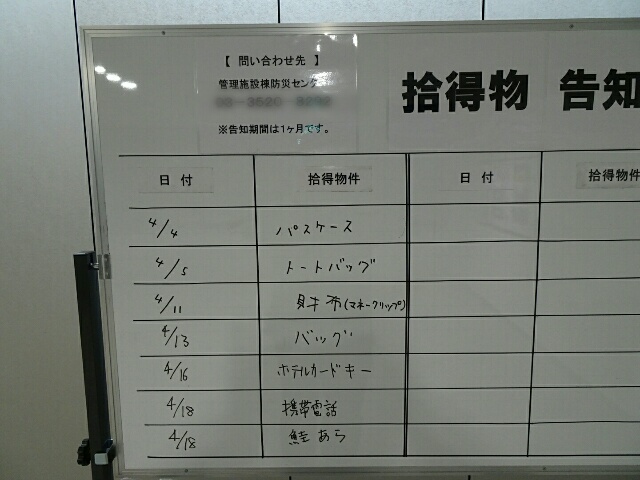 【 問い合わせ先 】
管理施設棟防災センター
※告知期間は1ヶ月です。
拾得物 告知
日付 拾得物件 日付 拾得物件
4/4 パスケース
4/5 トートバッグ
4/11 財布(マネークリップ)
4/13 バッグ
4/16 ホテルカードキー
4/18 携帯電話
4/18 鮭あら